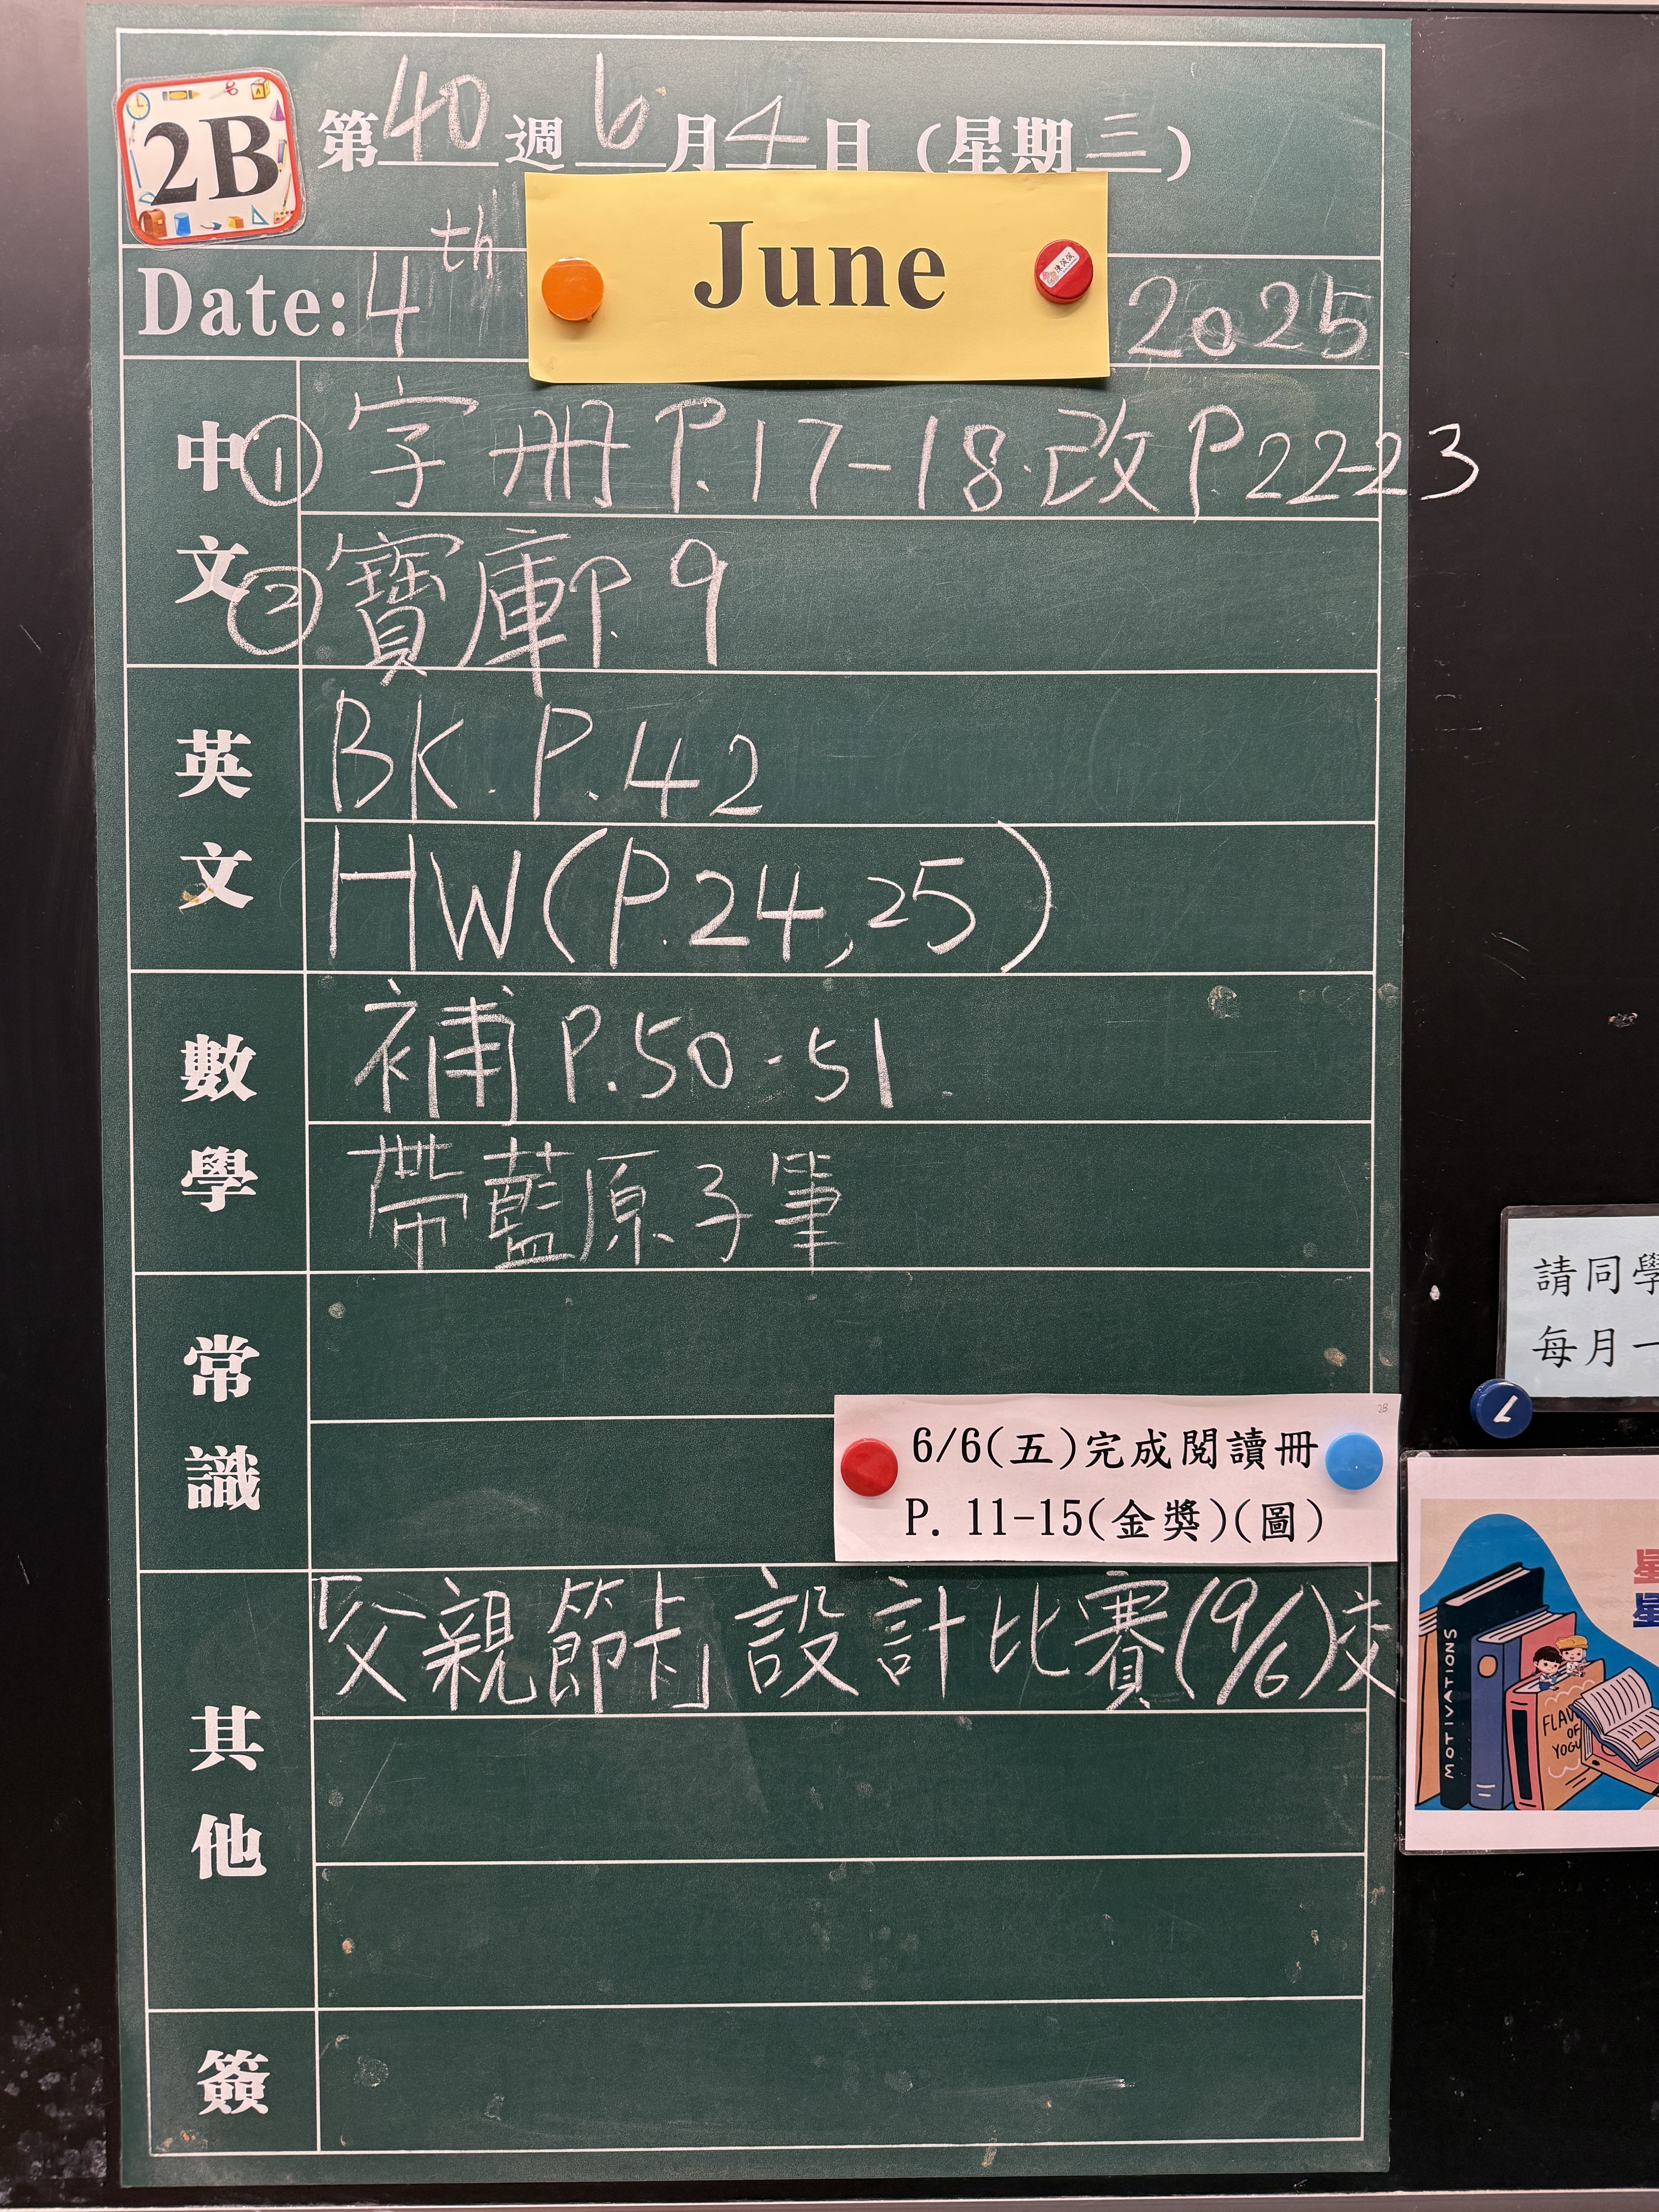 2B
第40週6月4日(星期三)
Date: 4th June 2025
中文
① 字冊 P.17-18.改 P.22-23
② 寶庫P.9
英文
BK. P.42
HW(P.24,25)
數學
補 P.50-51.
帶藍原子筆
常識
2B
6/6(五)完成閱讀冊
P. 11-15(金獎)(圖)
其他
「父親節卡」設計比賽(9/6)交
簽
請同學
每月一
MOTIVATIONS
FLAV
OF
YOGU